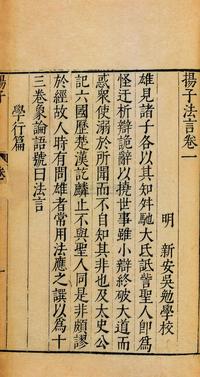 揚子法言卷一
明 新安吳勉學校
雄見諸子各以其知舛馳大氐詆訾聖人即爲
怪迂析辯詭辭以撓世事雖小辯終破大道而
惑衆使溺於所聞而不自知其非也及太史公
記六國歷楚漢訖麟止不與聖人同是非頗謬
於經故人時有問雄者常用法應之譔以爲十
三卷象論語號曰法言
學行篇
揚子
卷一